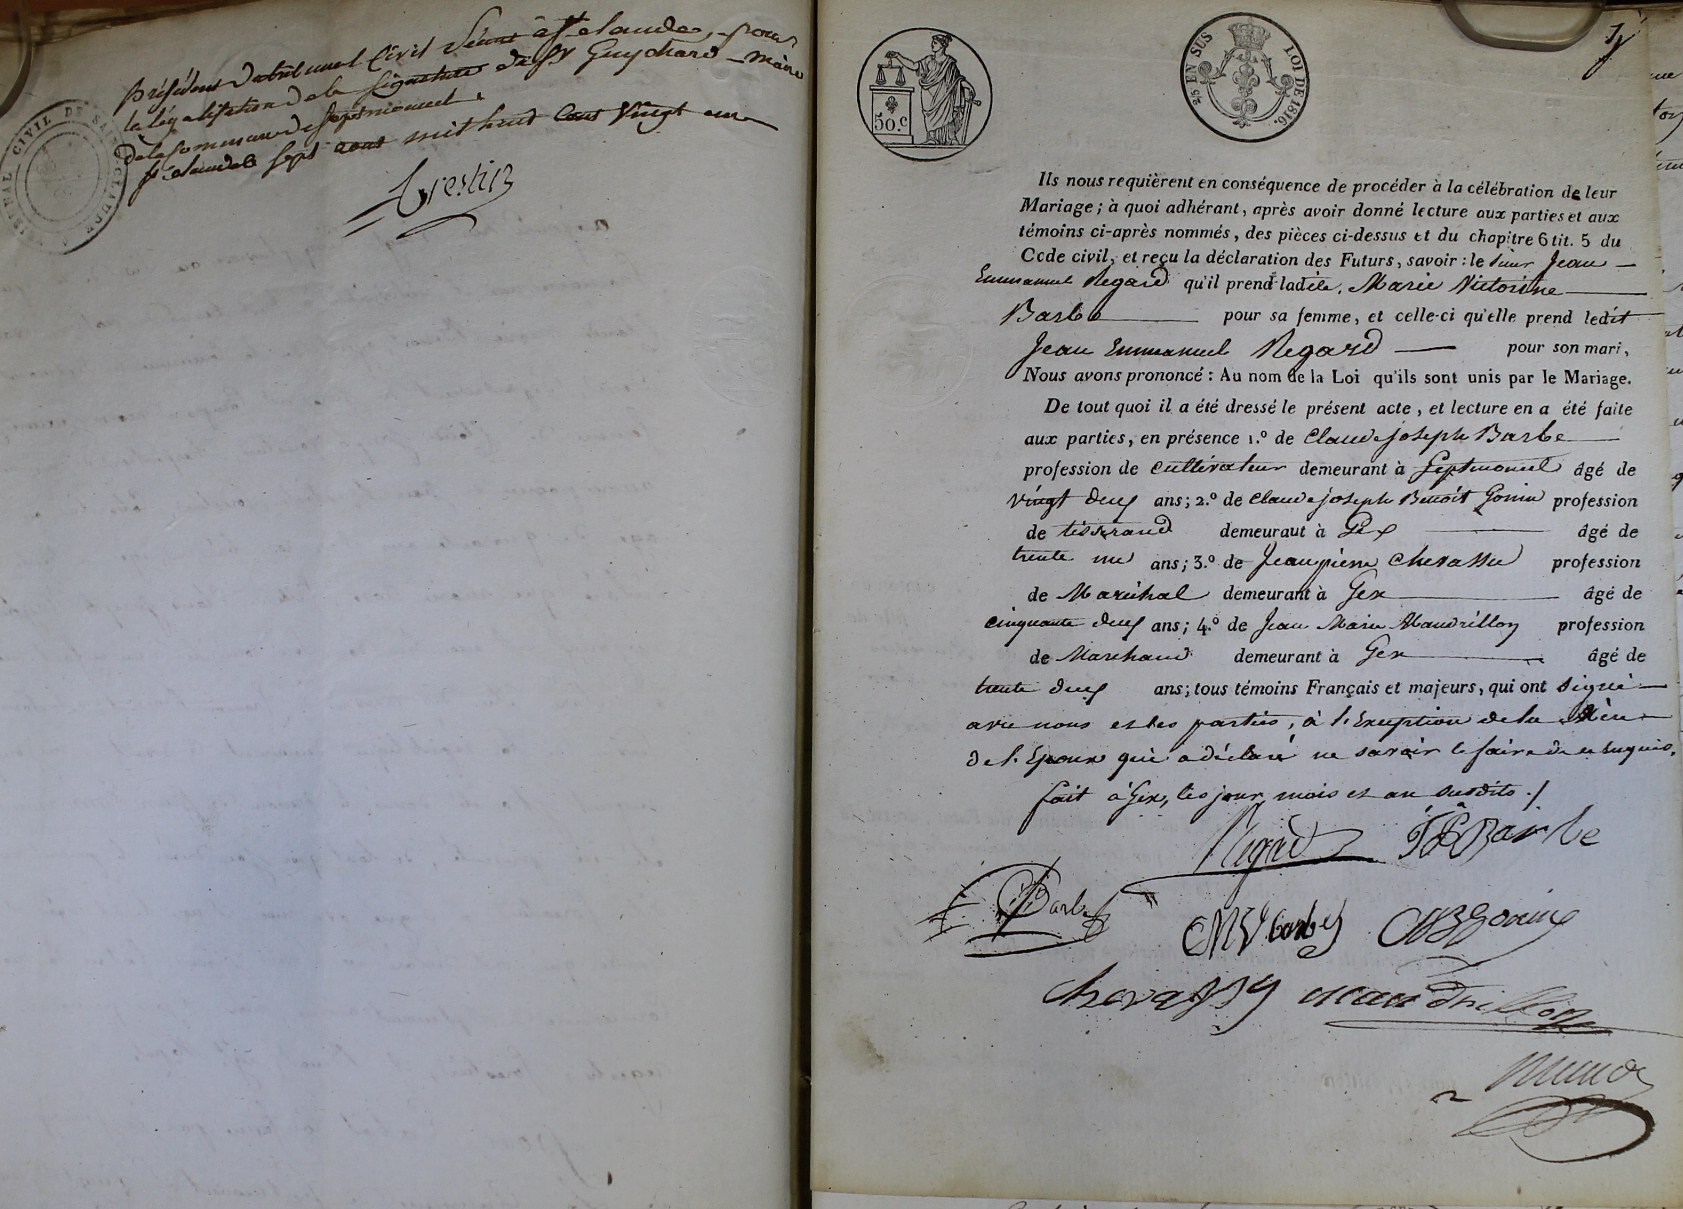 Président du tribunal Civil Séant à St Claude, pour
la légalisation de la signature de Sr Guychard maire
de la Commune de Septmoncel.
St Claude le sept août mil huit Cent Vingt un
TRIBUNAL CIVIL DE SAINT-CLAUDE
50.c
25 EN SUS
LOI DE 1816.
Ils nous requièrent en conséquence de procéder à la célébration de leur
Mariage; à quoi adhérant, après avoir donné lecture aux parties et aux
témoins ci-après nommés, des pièces ci-dessus et du chapitre 6 tit. 5 du
Code civil, et reçu la déclaration des Futurs, savoir : le sieur Jean
Emmanuel Regard qu'il prend ladite. Marie Victorine
Barbe pour sa femme, et celle-ci qu'elle prend ledit
Jean Emmanuel Regard pour son mari,
Nous avons prononcé : Au nom de la Loi qu'ils sont unis par le Mariage.
De tout quoi il a été dressé le présent acte, et lecture en a été faite
aux parties, en présence 1.º de Claude joseph Barbe
profession de cultivateur demeurant à Septmoncel âgé de
vingt deux ans; 2.º de Claude joseph Benoit Gonin profession
de tisserand demeurant à Gex âgé de
trente un ans; 3.º de Jean pierre Chevassu profession
de Maréchal demeurant à Gex âgé de
cinquante deux ans; 4.º de Jean Marie Maudrillon profession
de Marchand demeurant à Gex âgé de
trente deux ans; tous témoins Français et majeurs, qui ont signé
avec nous et les parties, à l'Exception de la Mère
de l'Epoux qui a déclaré ne savoir le faire de ce enquis.
fait à Gex, les jour, mois et an susdits ./
Regard Barbe
Barbe MV barbe Gonin
Chevassu Maudrillon